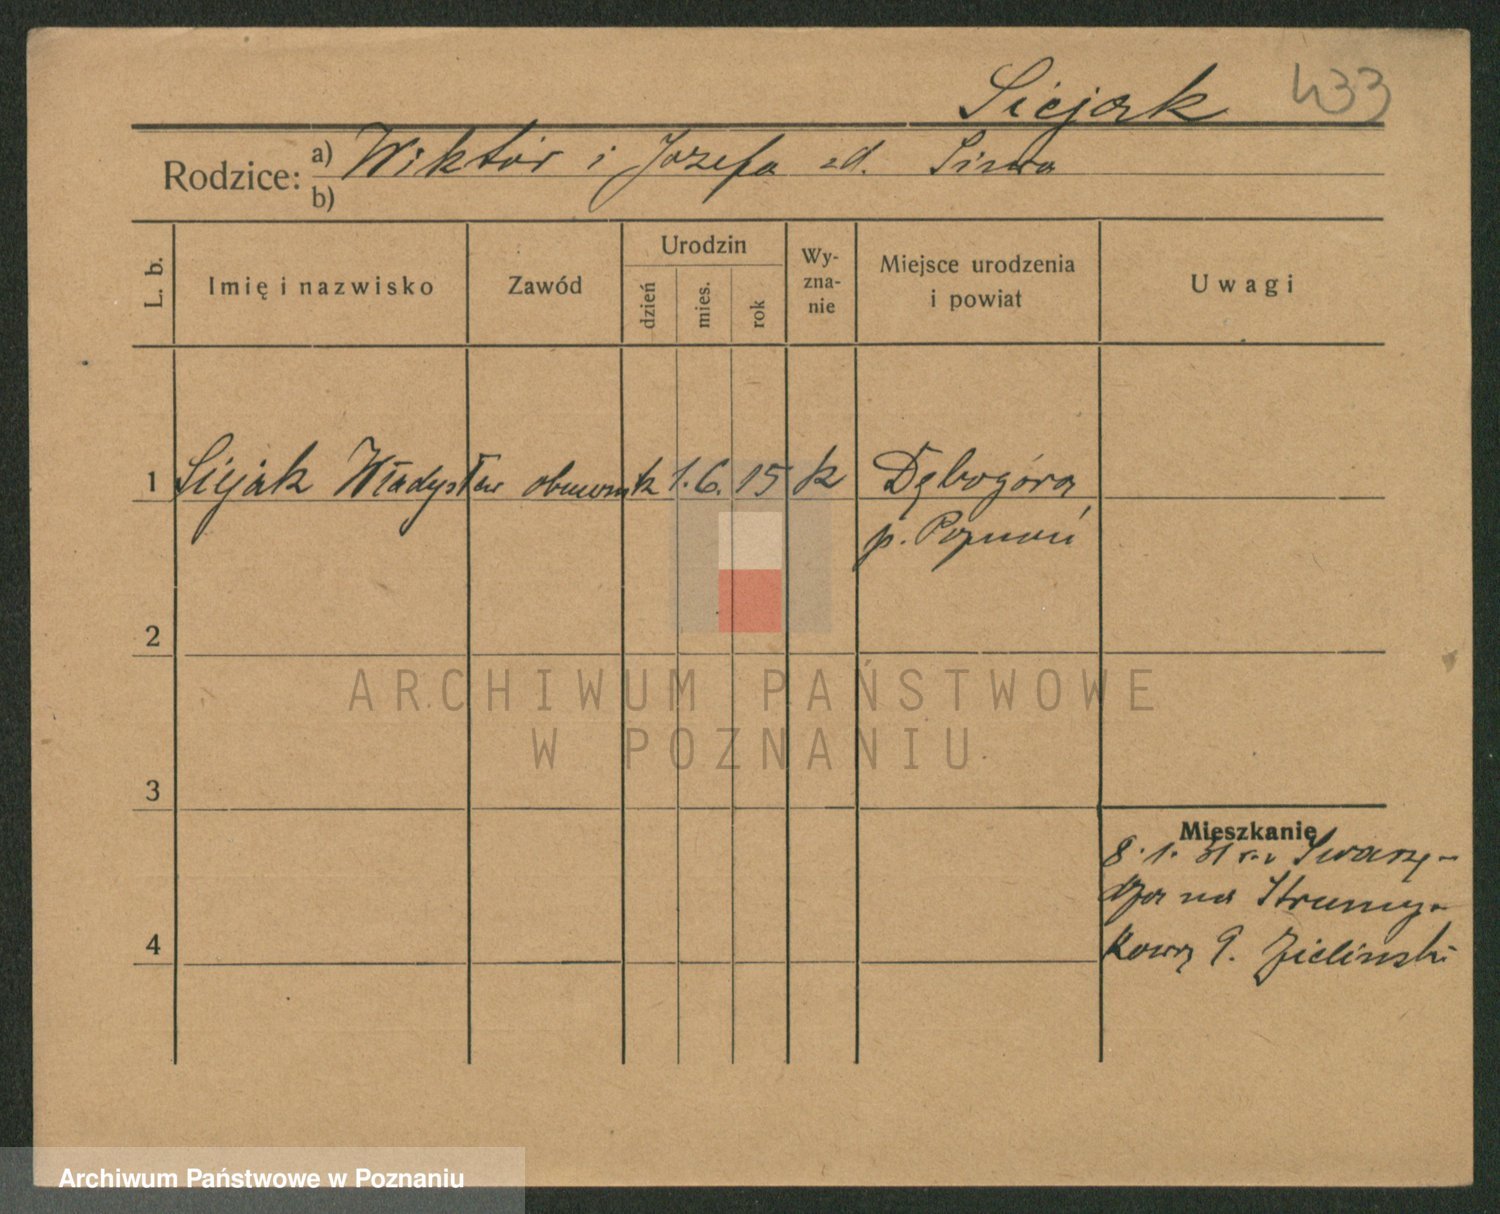 Siejak 433
Rodzice: a) Wiktór i Józefa zd. Siwa
b)
L. b. Imię i nazwisko Zawód Urodzin dzień mies. rok Wy-zna-nie Miejsce urodzenia i powiat Uwagi
1 Siejak Władysław obuwnik 1. 6. 15 k Dębogóra
p. Poznań
2
3
4
Mieszkanie
8. 1. 31 Swarzę-
dza na Strumy-
kową 9. Zieliński
ARCHIWUM PAŃSTWOWE
W POZNANIU
Archiwum Państwowe w Poznaniu